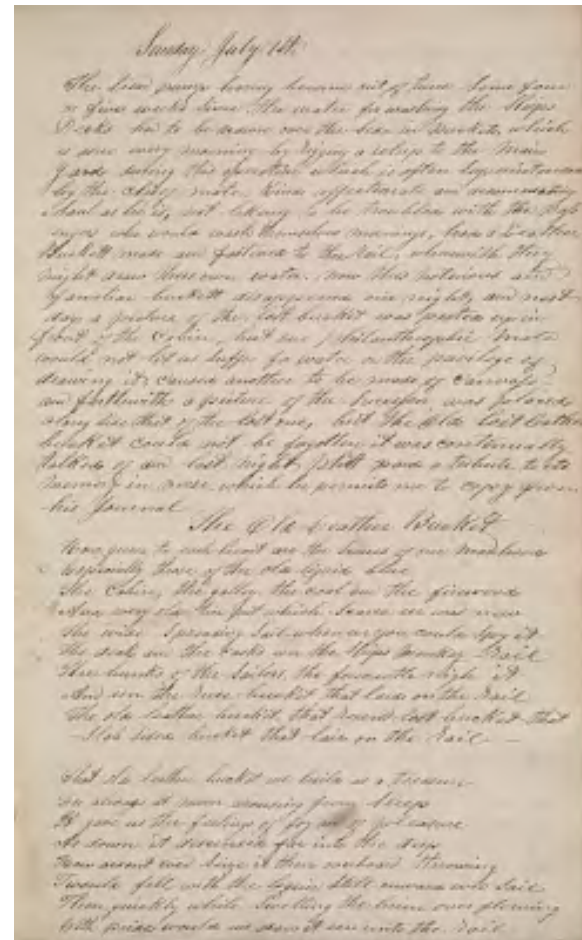 Sunday July 1st
The pump having become out of tune some four
or five weeks since the water for washing the Ships
Decks has to be drawn over the side in buckets, which
is done every morning by rigging a whip to the Main
Yard during this operation which is often
by the Chief mate, kind affectionate and accommodating
as he is, not liking to be troubled with the
who would wash themselves mornings, had a Leather
Buckett made and fastened to the rail, wherewith they
might draw their own water. now this notorious and
familiar buckett disappeared one night, and next
day a picture of the lost bucket was posted up in
front of the Cabin, but our philanthropic Mate
would not let us suffer for water or the privilege of
drawing it, caused another to be made of Canvass
and forthwith a picture of the was placed
along side that of the lost one, but the Old Lost Leather
bucket could not be forgotten it was continually
talked of and last night paid a tribute to its
memory in verse which he permits me to copy from
his Journal
The Old Leather Bucket
How dear to each heart are the of our
especially those of the old liquid blue
The Cabin, the galley, the and the firewood
And every old which was new
The wide spreading Sail where you could spy it
The and the Casks on the Ships monkey Rail
The bunks of the Sailors, the forecastle nigh it
And even the bucket that laid on the Rail
The old leather bucket, that round lost bucket that
Slab sided bucket that laid on the Rail
That old leather bucket we as a treasure
always at from Sleep
It gave us the feelings of joy and of pleasure
As down it descended far into the deep
How ardent we'd Seize it then overboard throwing
Twould fill with the liquid still onward we'd Sail
Then quickly while Swelling the brine over flowing
With pride would we draw it up unto the Rail